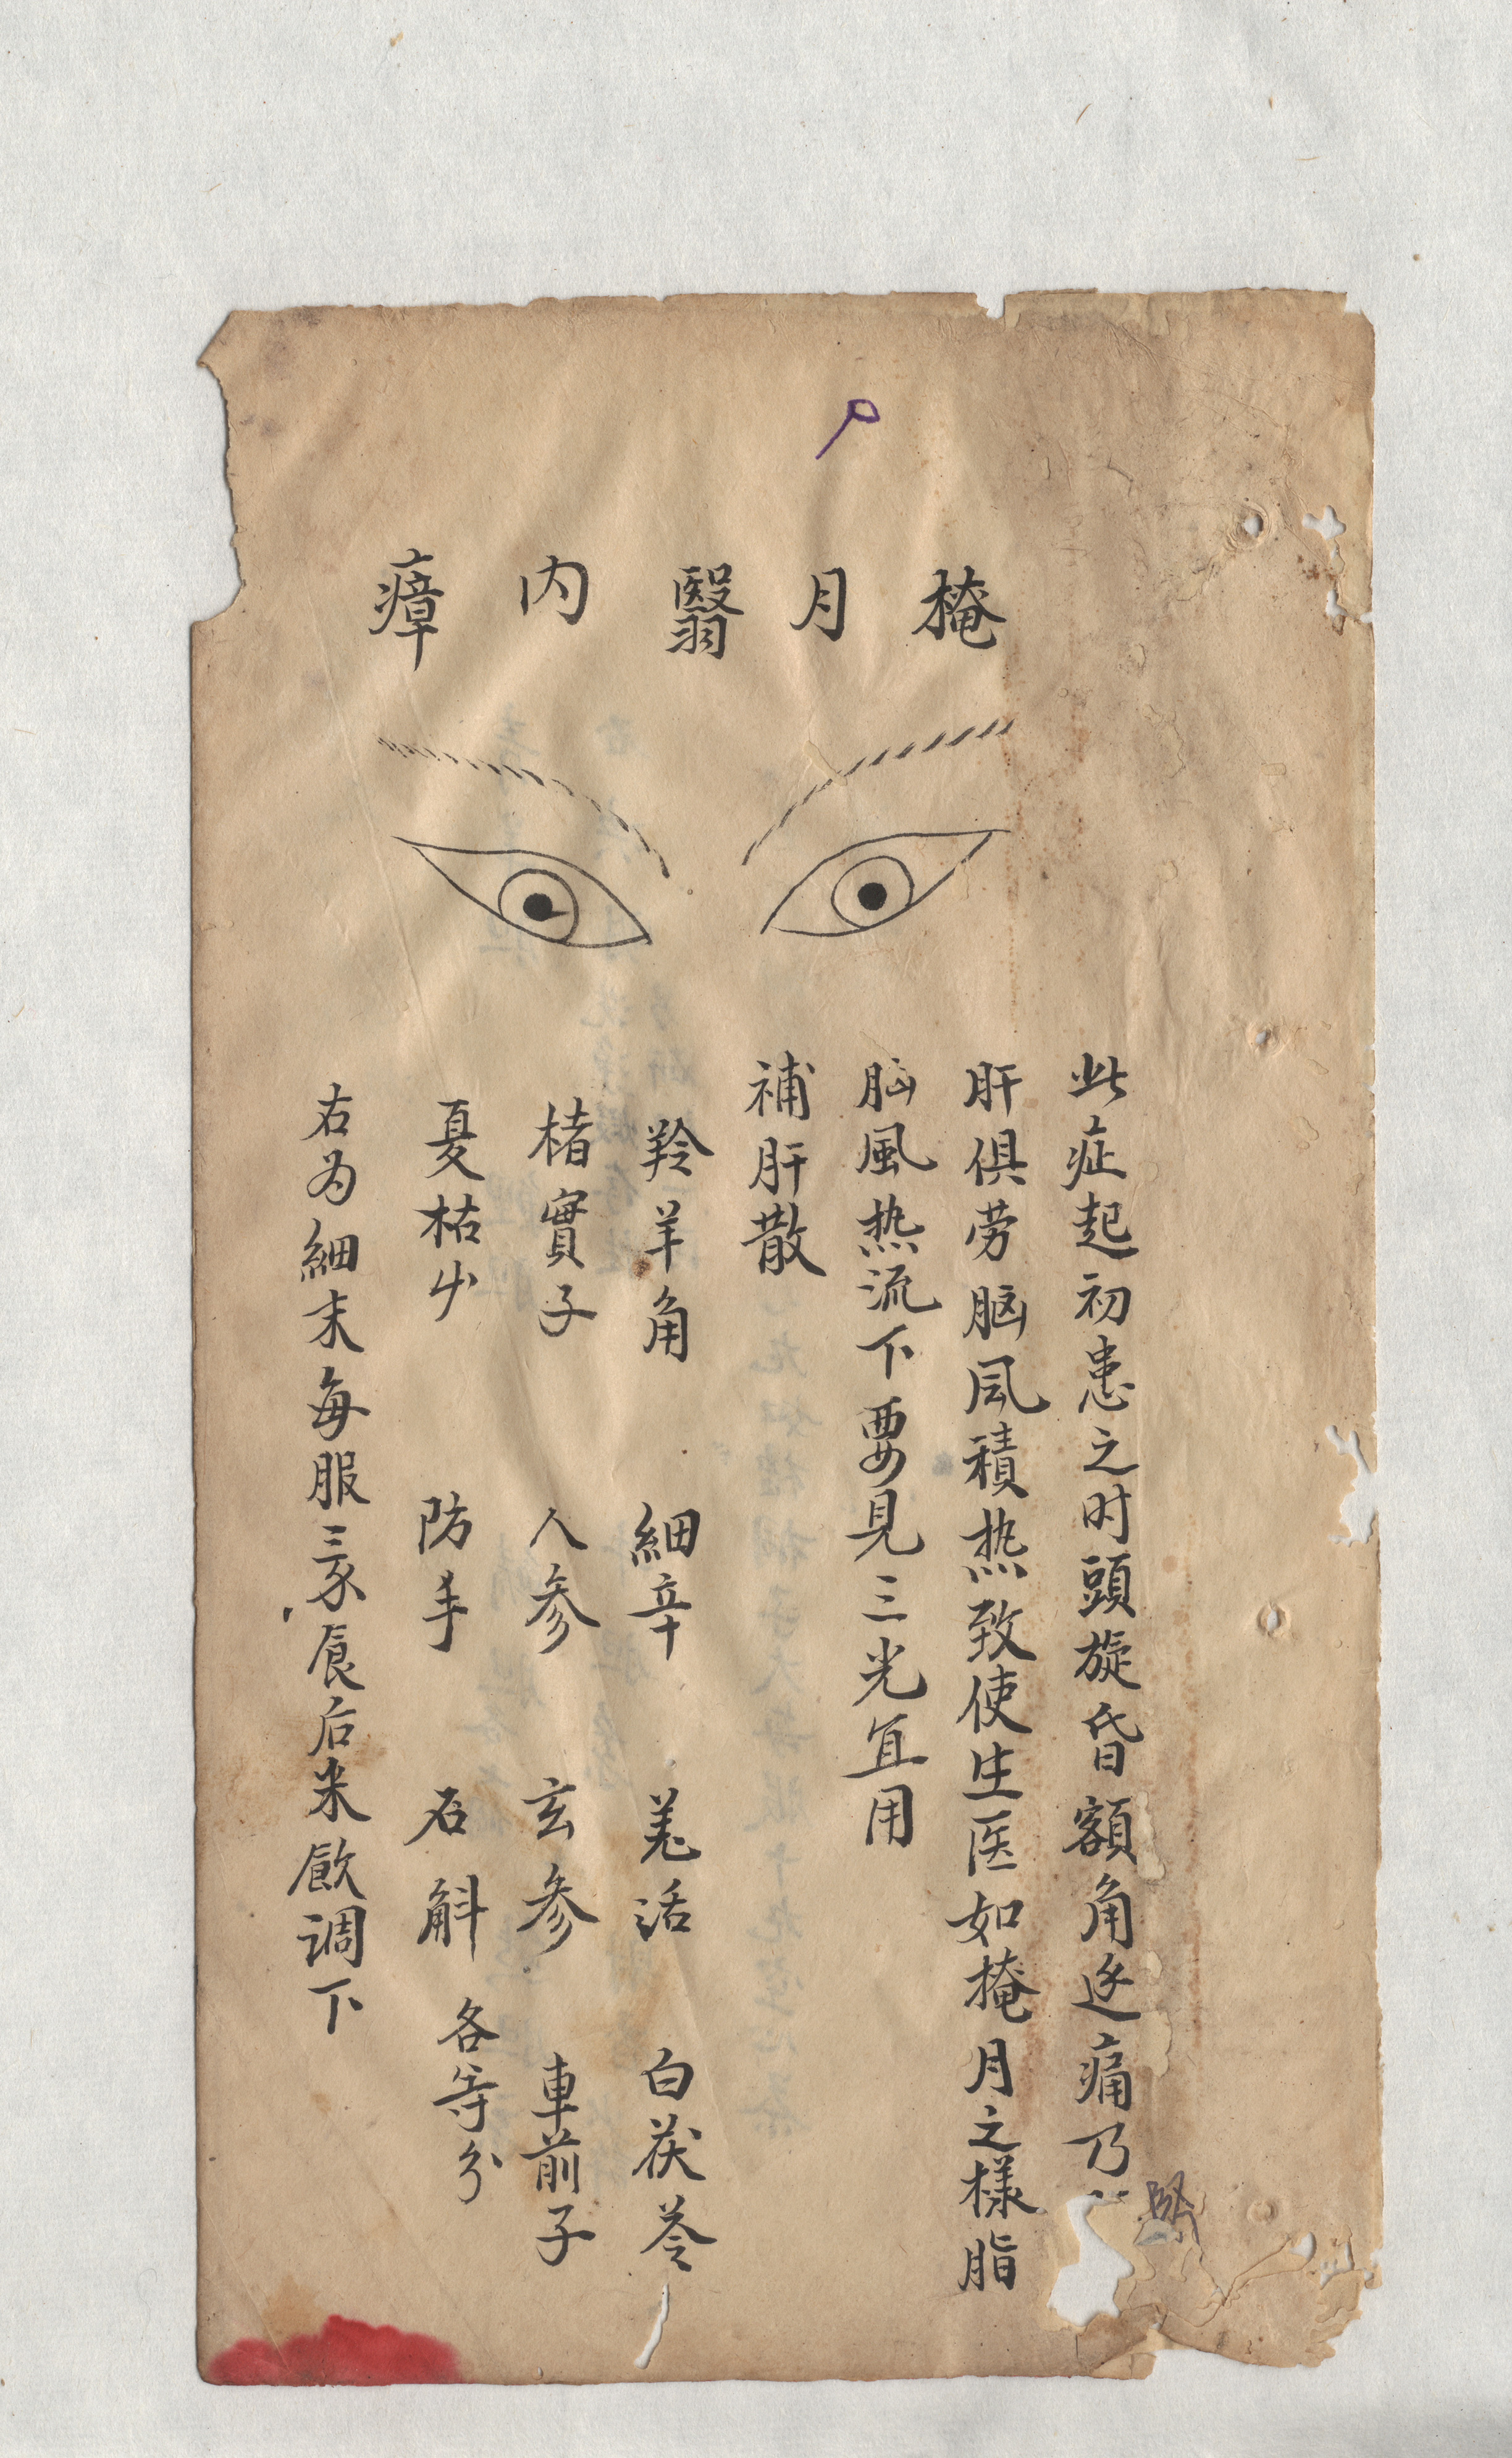 掩月翳内瘴
此症起初患之时頭旋昏額角逐痛乃
腎
肝俱劳脑风積热致使生医如掩月之樣脂
脑風热流下要見三光宜用
補肝散
羚羊角 細辛 羗活 白茯苓
楮實子 人参 玄参 車前子
夏枯 防 石斛 各等分
右为細末每服三 食后米飲调下